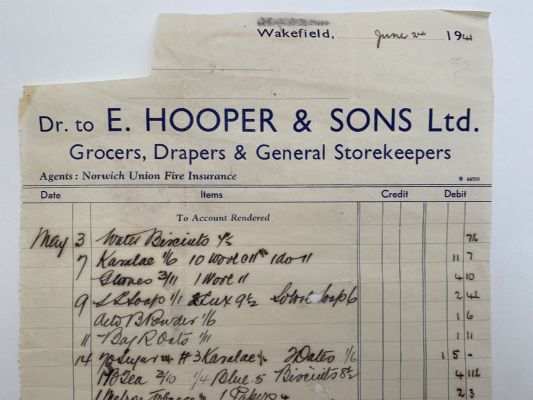 Wakefield, June 2nd 1941
Dr. to E. HOOPER & SONS Ltd.
Grocers, Drapers & General Storekeepers
Agents: Norwich Union Fire Insurance B 44500
Date Items Credit Debit
To Account Rendered
May 3 Water Biscuits 7½
7 Karalac 1/6 10 Wool 1 do 11 7
Gloves 3/11 1 Wool 11 4 10
9 Soap 1/1 Lux 9½ Soap 6 2
Powder 1/6 1 6
11 1 Bag R Oats 1/11 1 11
14 Sugar # 3 Karalac 2 Dates 1/6 1 5 -
Tea 3/10 ¼ Blue 5 Biscuits 8½ 4 11½
Tobacco 1 Papers 4 2 3